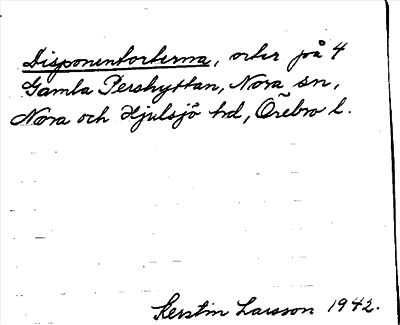 Disponentorterna, orter på 4
Gamla Pershyttan, Nora sn,
Nora och Hjulsjö hd, Örebro l.
Kerstin Larsson 1942.